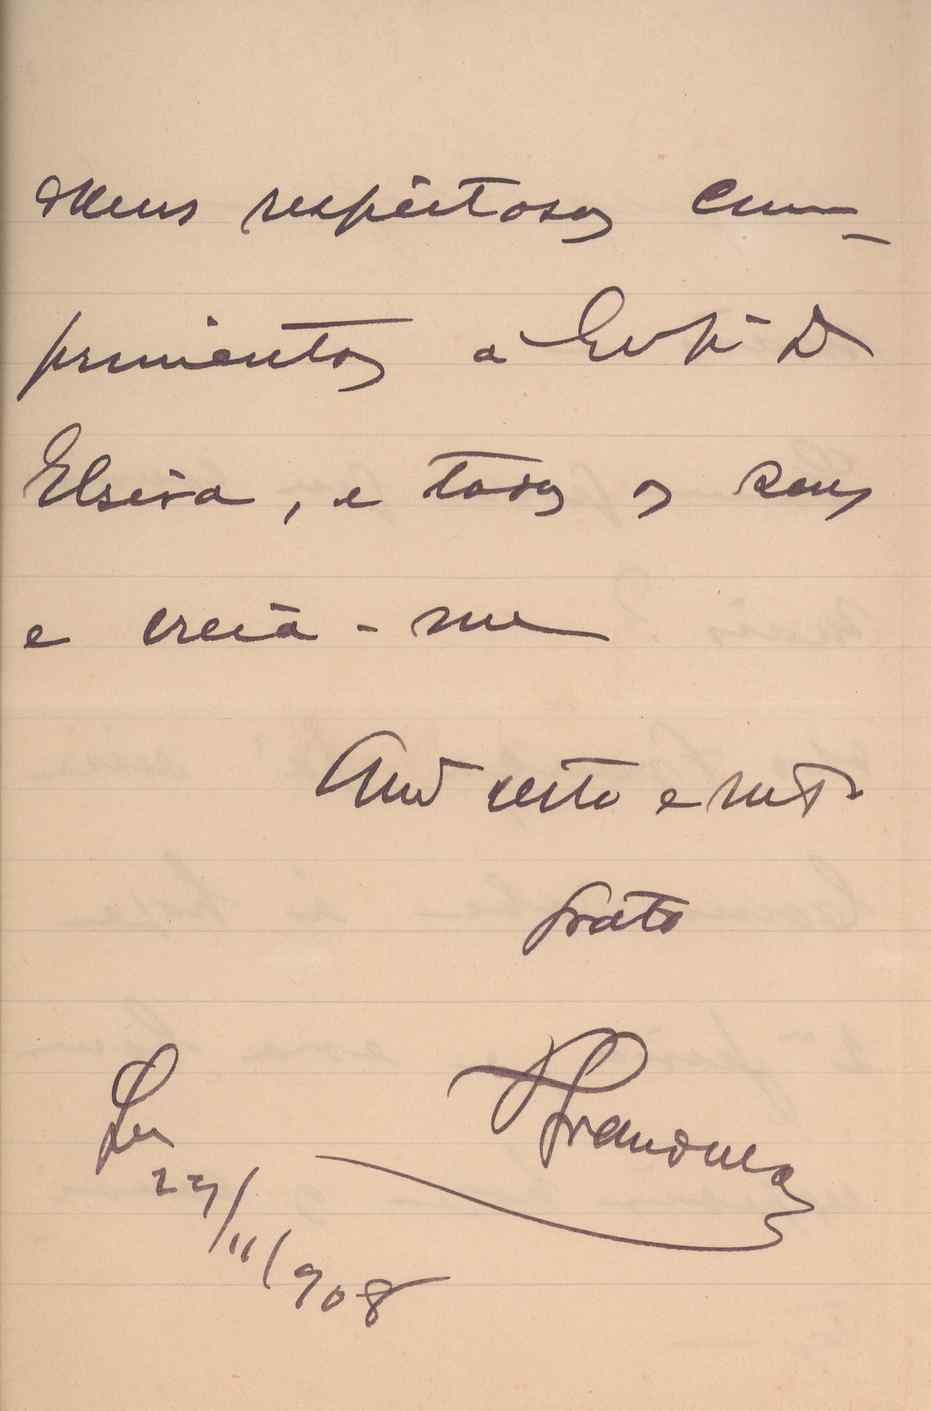 Meus respeitosos cum-
primentos a Exmª D
Elvira, e todos os seus
e creia-me
Amº certo e mtº
grato
27/11/908